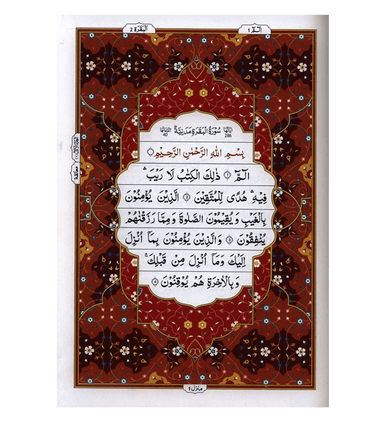 البقرة ٢
الٓمّٓ ١
سُوْرَةُ الْبَقَرَةِ مَدَنِيَّةٌ
بِسْمِ اللهِ الرَّحْمٰنِ الرَّحِيْمِ
الٓمّٓ ۚ ذٰلِكَ الْكِتٰبُ لَا رَيْبَ
فِيْهِ هُدًى لِّلْمُتَّقِيْنَ الَّذِيْنَ يُؤْمِنُوْنَ
بِالْغَيْبِ وَيُقِيْمُوْنَ الصَّلٰوةَ وَمِمَّا رَزَقْنٰهُمْ
يُنْفِقُوْنَ وَالَّذِيْنَ يُؤْمِنُوْنَ بِمَآ اُنْزِلَ
اِلَيْكَ وَمَآ اُنْزِلَ مِنْ قَبْلِكَ
وَبِالْاٰخِرَةِ هُمْ يُوْقِنُوْنَ
منزل ١